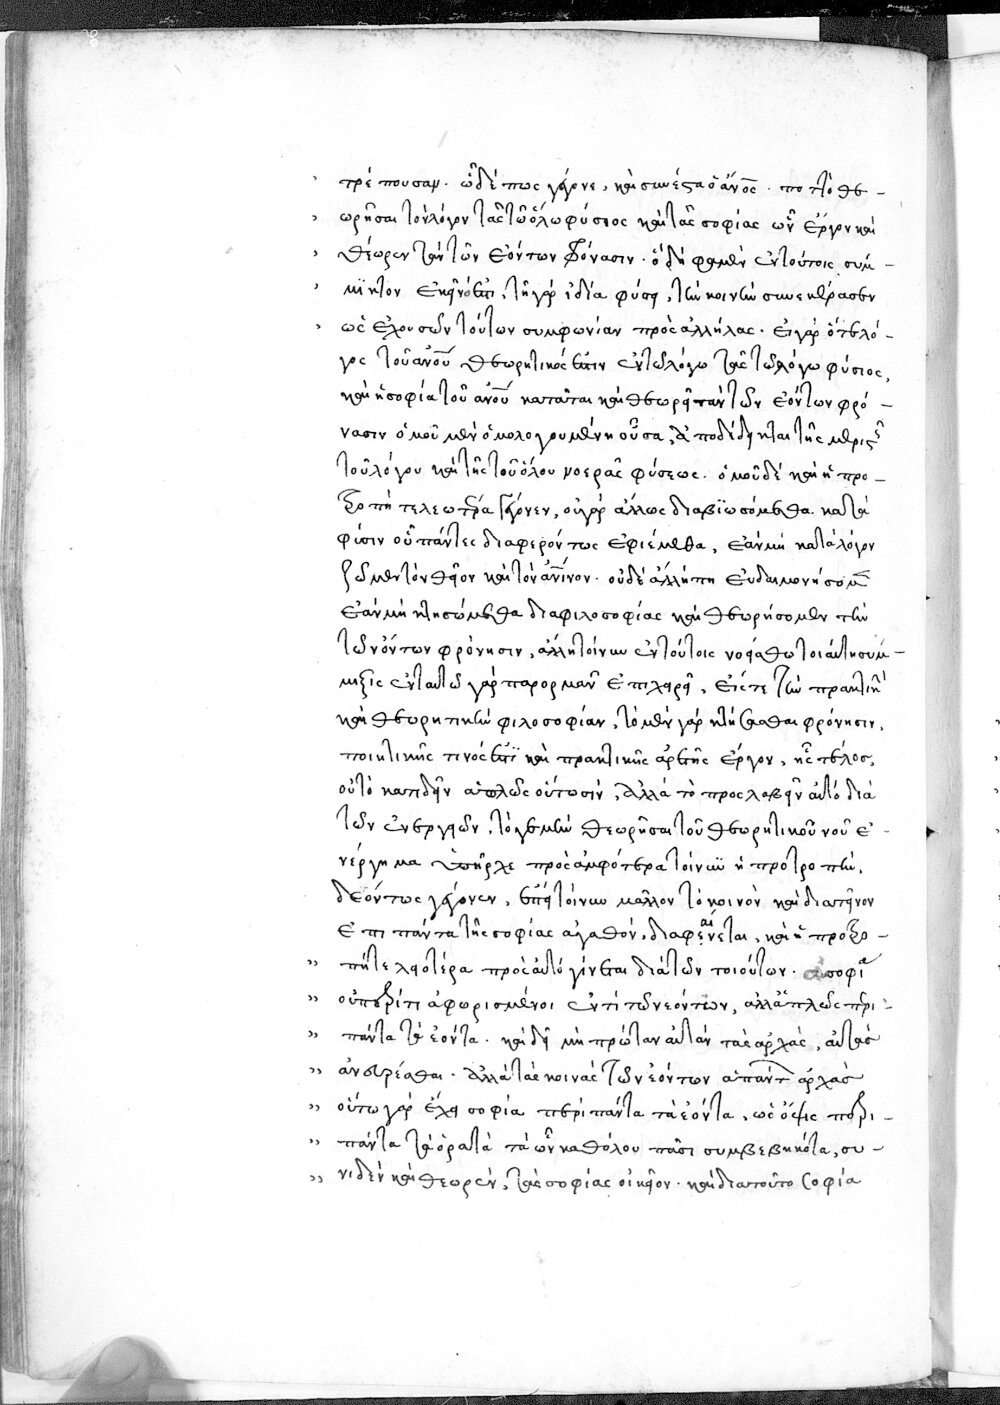 τρέπουσαν. ὧδέ πως γέγονε, καὶ συνέστα ὁ ἄνος. ποττὸ θε-
ωρῆσαι τὸν λόγον τᾶς τῶ ὅλω φύσιος καὶ τᾶς σοφίας ὦν ἔργον καὶ
θέωρεν τὰν τῶν ἐόντων φρόνασιν. ὃ δὴ φαμὲν ἐν τούτοις σύμ-
μικτον ἐκεῖνό ἐστι, τῇ γὰρ ἰδία φύσει, τὴν κοινὴν συνεκέρασεν
ὡς ἐχουσῶν τούτων συμφωνίαν πρὸς ἀλλήλας. εἰ γὰρ ὅτε λό-
γος τοῦ ἀνου θεωρητικός ἐστιν ἐν τῶ λόγω τᾶς τῶ λόγω φύσιος,
καὶ ἡ σοφία τοῦ ἀνου κατᾶται καὶ θεωρεῖ τὰν τῶν ἐόντων φρό-
νασιν ὁμοῦ μὲν ὁμολογουμένη οὖσα, ἀποδέδεικται τῆς μερισ
τοῦ λόγου καὶ τῆς τοῦ ὅλου νοερᾶς φύσεως. ὁμοῦ δὲ καὶ ἡ προ-
τροπὴ τελεωτέρα γέγονεν, οὐ γὰρ ἄλλως διαβιωσόμεθα κατὰ
φύσιν οὗ πάντες διαφερόντως ἐφιέμεθα, ἐὰν μὴ κατὰ λόγον
ζῶμεν τὸν θεῖον καὶ τὸν ἀνινον. οὐδὲ ἄλλη πῃ εὐδαιμονήσομ
ἐὰν μὴ κτησώμεθα διὰ φιλοσοφίας καὶ θεωρήσομεν τὴν
τῶν ὄντων φρόνησιν, ἀλλὴ τοίνυν ἐν τούτοις νοείσθω τοιαύτη σύμ-
μιξις ἐν ταυτῶ γὰρ παρορμᾶν ἐπιχειρεῖ, ἐπί τε τὴν πρακτικὴ
καὶ θεωρητικὴν φιλοσοφίαν, τὸ μὲν γὰρ κτήσασθαι φρόνησιν,
ποιητικῆς τινός ἐστι καὶ πρακτικῆς ἀρετῆς ἔργον, ἧς τέλος,
οὐ τὸ κατιδεῖν ἁπλῶς οὑτωσὶν, ἀλλὰ τὸ προσλαβεῖν αὐτὸ διὰ
τῶν ἐνεργειῶν, τό γε μὴν θεωρῆσαι τοῦ θεωρητικοῦ νοῦ ἐ-
νέργημα ὑπῆρχε πρὸς ἀμφότερα τοίνυν ἡ προτροπὴν,
δεόντως γέγονεν, ἐπεὶ τοίνυν μᾶλλον τὸ κοινὸν καὶ διατεῖνον
ἐπὶ πάντα τῆς σοφίας ἀγαθόν, διαφαίνεται, καὶ ἡ προτρο-
πή τελειοτέρα πρὸς αὐτό γίνεται διὰ τῶν τοιούτων. ἁ σοφία
οὐ περίτι ἀφωρισμένον ἐντὶ τῶν ἐόντων, ἀλλ' ἁπλῶς περὶ
πάντα τὰ ἐόντα. καὶ δεῖ μὴ πρῶταν αὐτὰν τὰς ἀρχὰς, αὐτᾶς
ἀνευρέσθαι. ἀλλὰ τὰς κοινὰς τῶν ἐόντων ἁπάντ ἀρχὰς
οὕτω γὰρ ἔχει σοφία περὶ πάντα τὰ ἐόντα, ὡς ὄψις περὶ
πάντα τὰ ὁρατὰ τὰ ὦν καθόλου πᾶσι συμβεβηκότα, συ-
νιδὲν καὶ θεωρὲν, τᾶς σοφίας οἰκεῖον. καὶ διατοῦτο σοφία